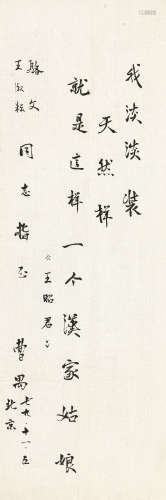 我淡淡装
天然样
就是这样一个汉家姑娘
《王昭君》
骆文
王淑耘 同志指正
曹禺
七九、十一、五
北京